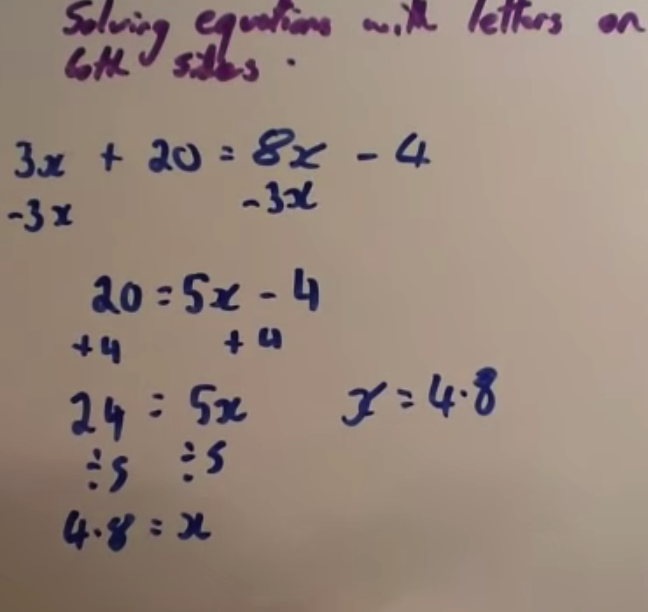 Solving equations with letters on
both sides.
3x + 20 = 8x - 4
-3x -3x
20 = 5x - 4
+4 +4
24 = 5x x = 4.8
÷5 ÷5
4.8 = x